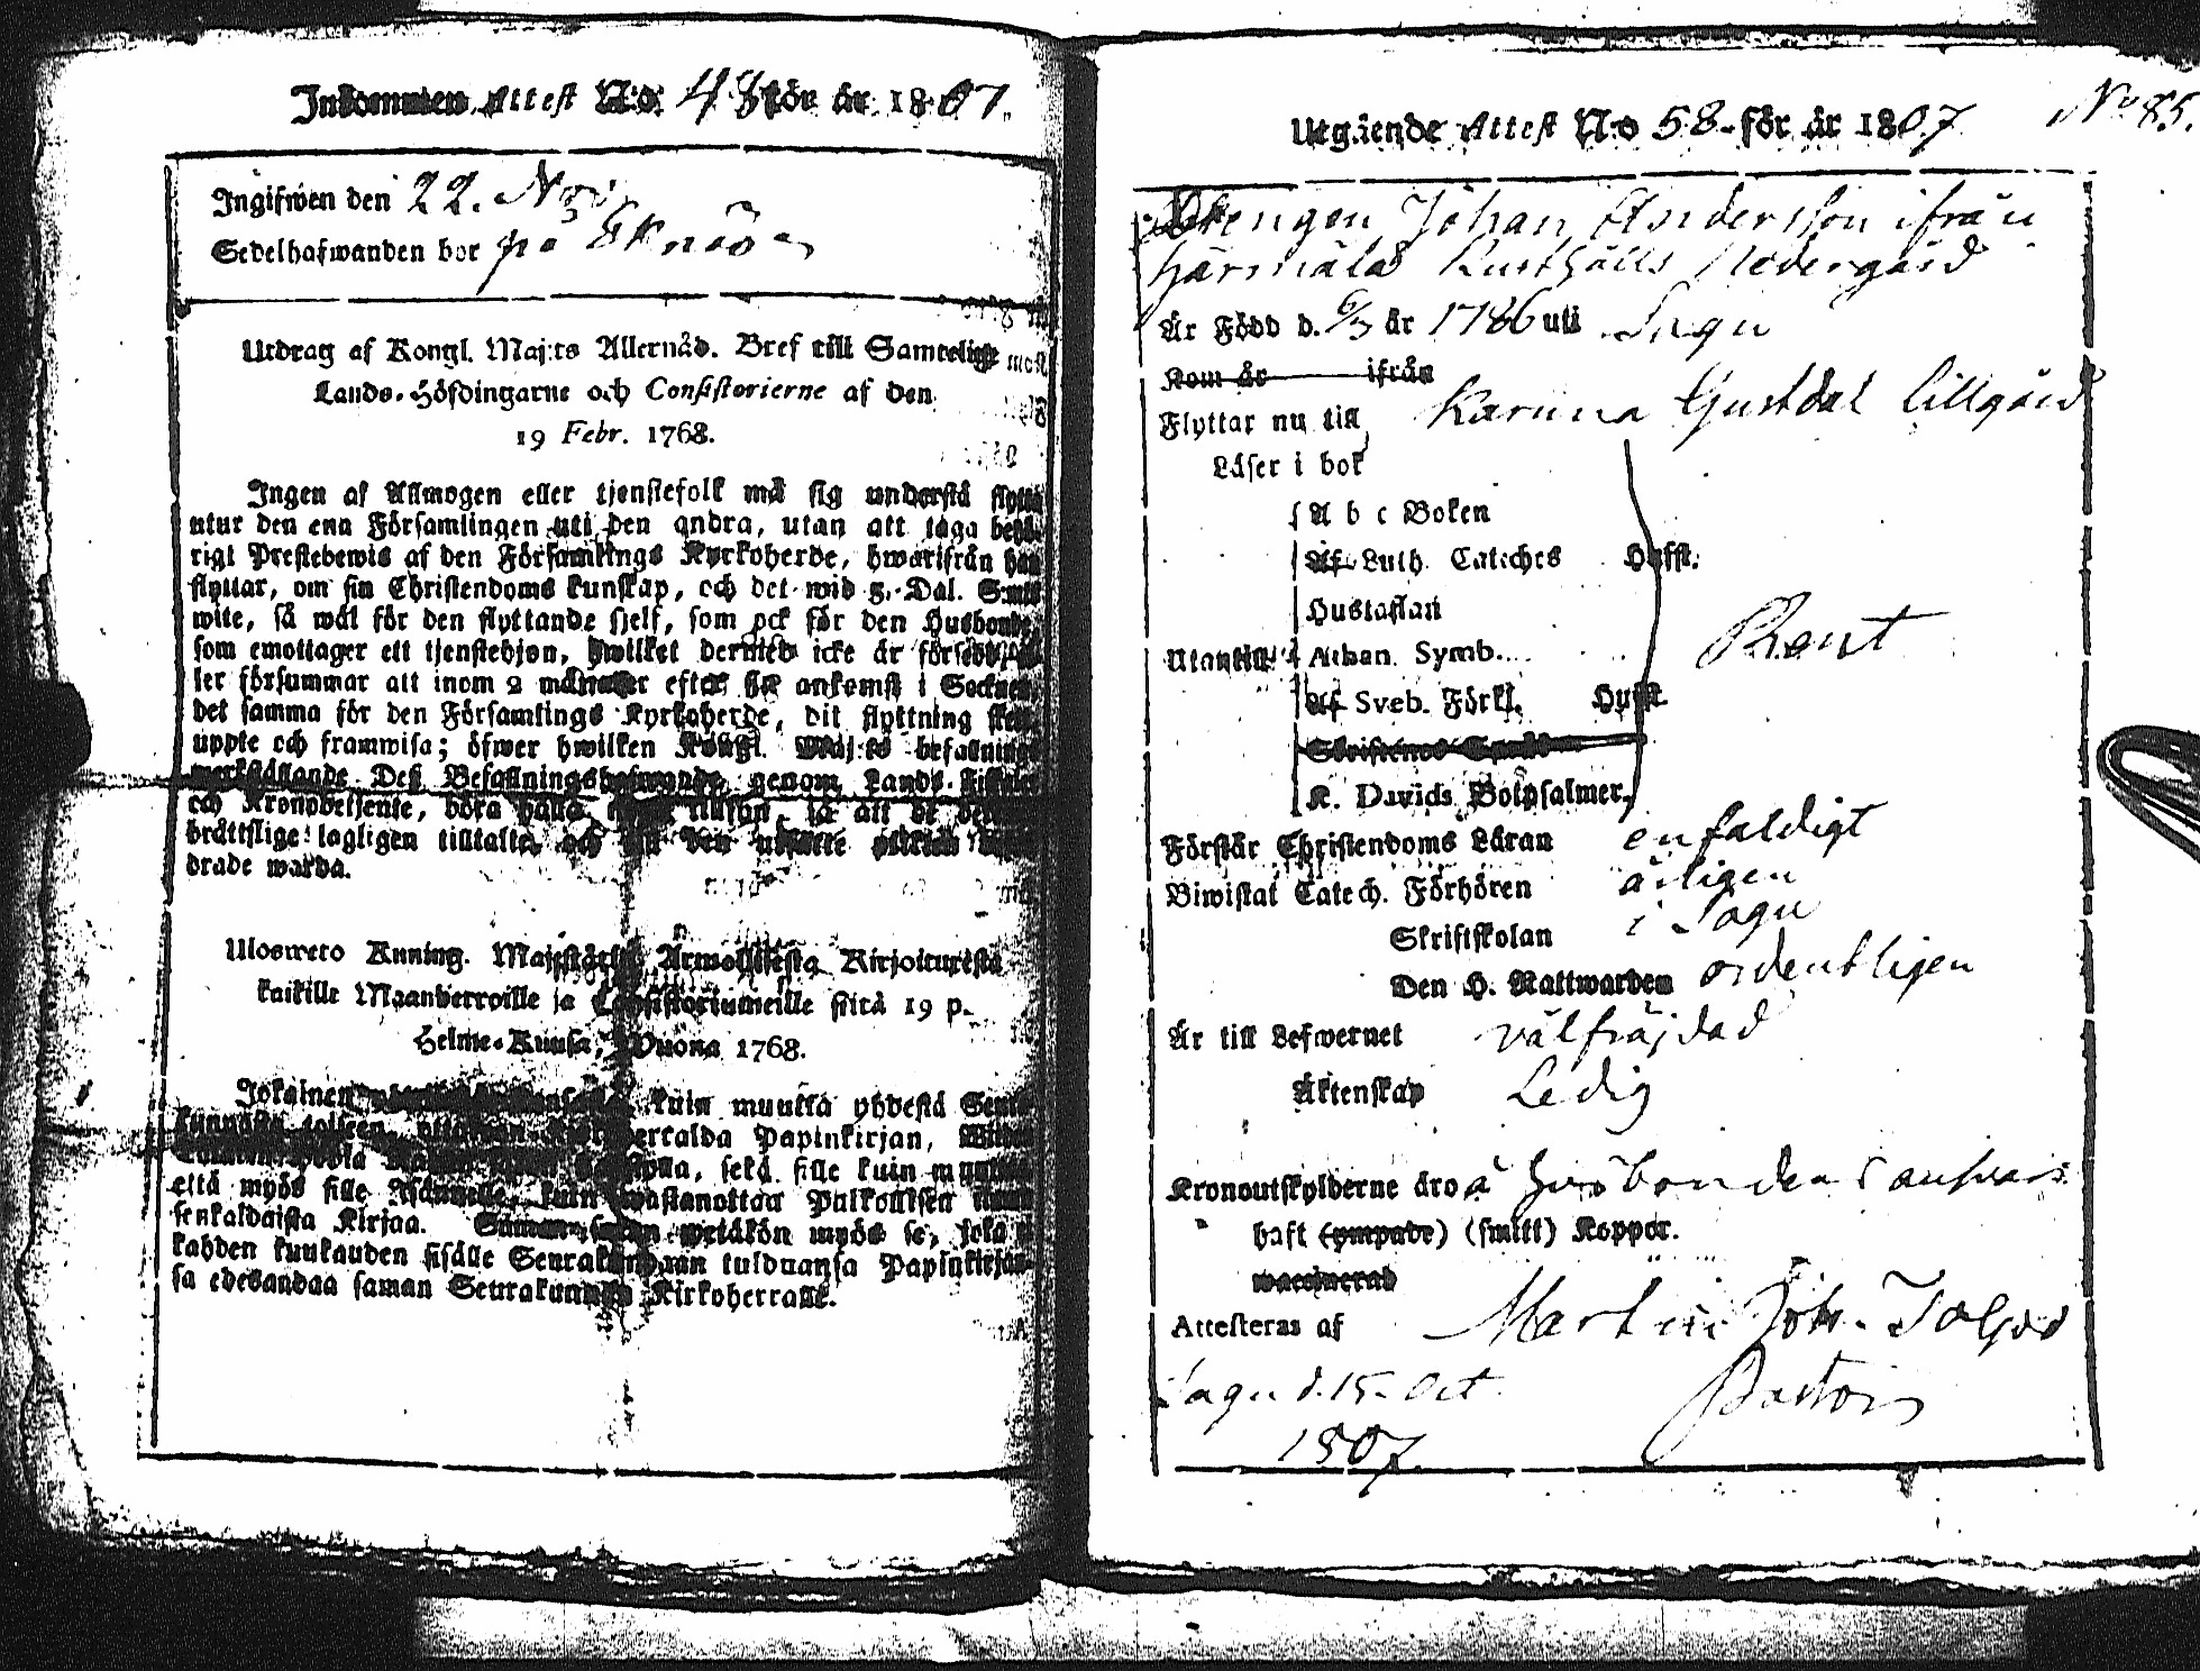 Inkommen Attest N:o 48 för år 1807.
Ingifwen den 22. Nov
Sedelhafwanden bor på Eknäs
Utdrag af Kongl. Maj:ts Allernåd. Bref till Samtelige
Lands-Höfdingarne och Consistorierne af den
19 Febr. 1768.
Ingen af Allmogen eller tjenstefolk må sig understå flytta
utur den ena Församlingen uti den andra, utan att taga behö-
rigt Prestebewis af den Församlings Kyrkoherde, hwarifrån han
flyttar, om sin Christendoms kunskap, och det wid 5 Dal. S:mts
wite, så wäl för den flyttande sjelf, som ock för den Husbonde,
som emottager ett tjenstehjon, hwilket dermed icke är försedt,
ler försummar att inom 2 månader efter ankomst i Socknen,
det samma för den Församlings Kyrkoherde, dit flyttning sker,
uppte och framwisa; öfwer hwilken Kongl. Maj:ts befallnings
werkställande Deß Befallningshafwande genom Lands-Fiskaler
och Kronobetjente, böra hafwa tillsyn, så att de
bråttslige lagligen tilltalte och den utsatte
drade warda.
Ulosweto Kuning. Majestätin Armollisesta Kirjoituxesta
kaikille Maanherroille ja Consistoriumeille siitä 19 p.
Helme-Kuusa, Wuona 1768.
Jokainen kuin muutta yhdestä Seura-
kunnasta toiseen, Papinkirjan,
sekä sille kuin muuttaa
että myös sille Isännälle, kuin wastanottaa Palkollisen ilman
senkaldaista Kirjaa. myös se, joka ei
kahden kuukauden sisälle Seurakundaan tulduansa Papinkirjaan-
sa edesandaa saman Seurakunnan Kirkoherralle.
Utgående Attest N:o 58 för år 1807
No 85.
Drengen Johan Andersson ifrån
Härmälä Rusthålls Nedergård
Är Född d. 6/3 år 1786 uti Sagu
Kom år ifrån
Flyttar nu till Karuna Gustdal Lillgård
Läser i bok
A b c Boken
Af Luth. Cateches Hufst.
Hustaflan
Utantill Athan. Symb.
Rent
Af Sveb. Förkl. Hufst.
K. Davids Botpsalmer
Förstår Christendoms Läran enfaldigt
Biwistat Catech. Förhören årligen
Skriftskolan i Sagu
Den H. Nattwarden ordentligen
Är till Lefwernet välfräjdad
Äktenskap Ledig
Kronoutskylderne äro å husbondens answar
haft (ympade) (smitt) Koppor.
waccinerad
Attesteras af Martin Joh. Tolpo
Sagu d. 15. Oct Pastor
1807